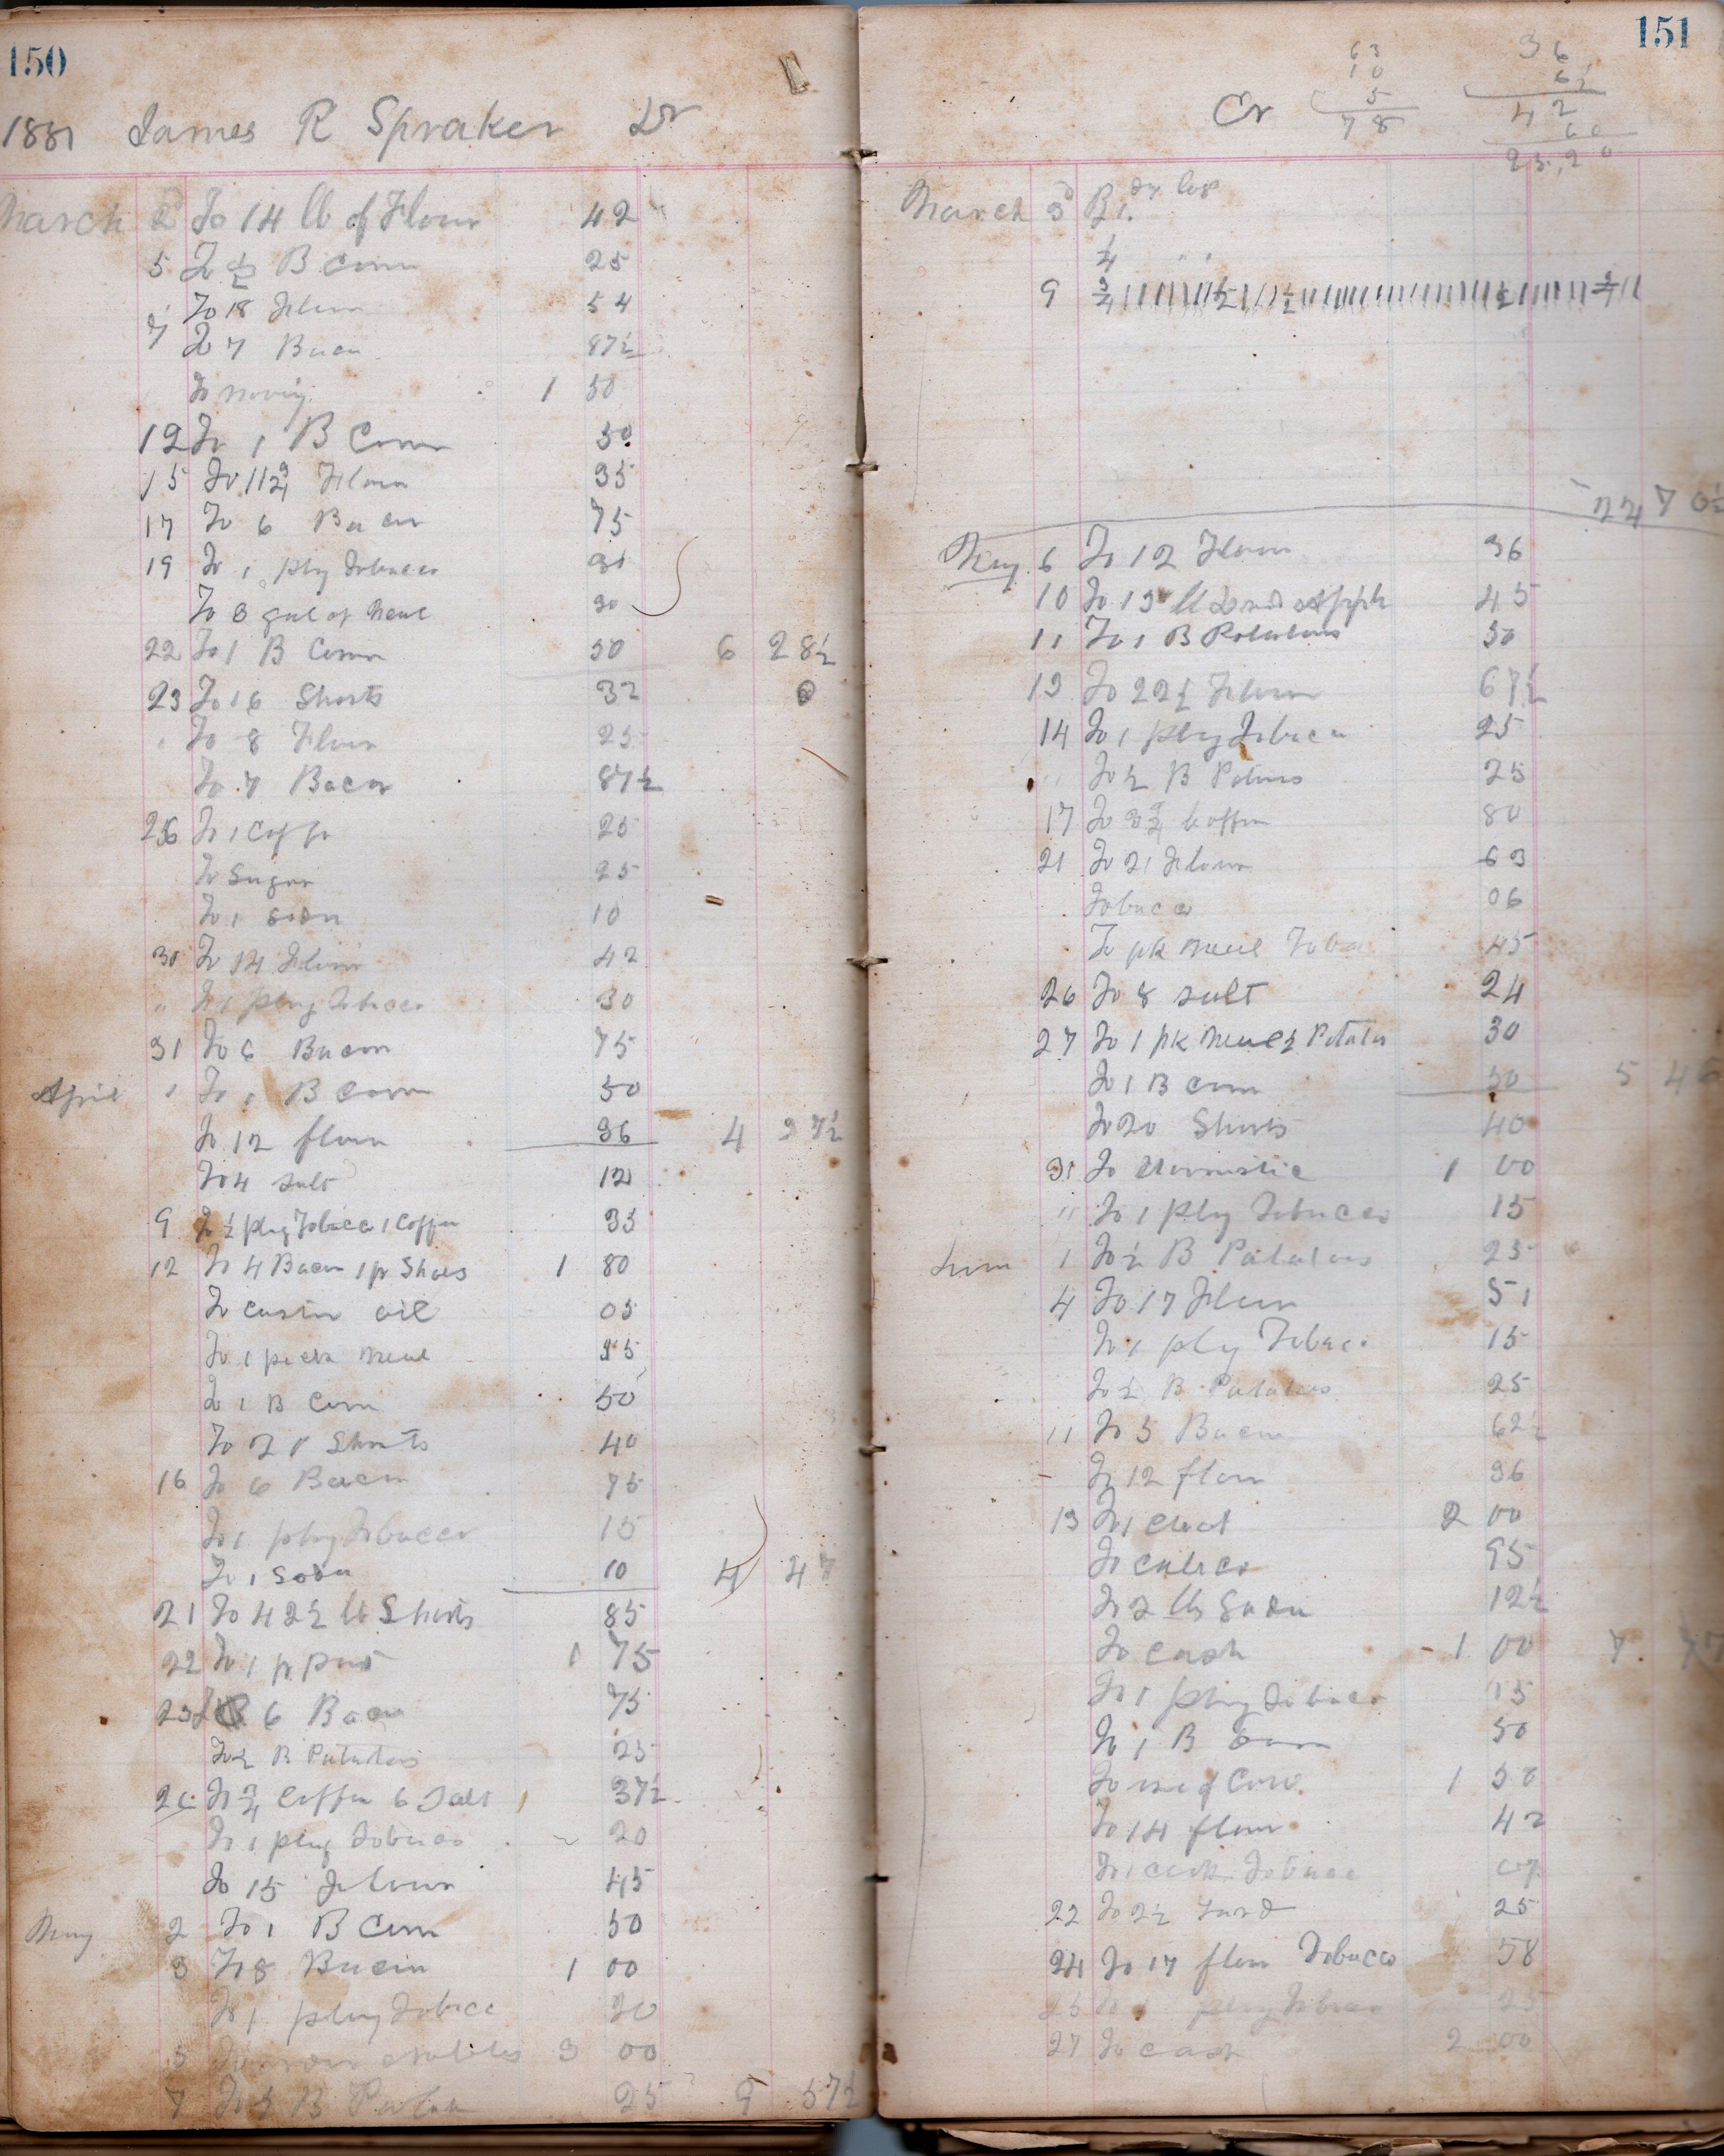 150
1881 James R Spraker Dr
March 2 To 14 lb of Flour 42
5 To 1/2 B Corn 25
To 18 Flour 54
7 To 7 Bacon 87 1/2
To 1 50
12 To 1 B Corn 50
15 To 11 3/4 Flour 35
17 To 6 Bacon 75
19 To 1 plug Tobacco
To 3 gal of Meal 30
22 To 1 B Corn 50 6 28 1/2
23 To 16 Shorts 32
" To 8 Flour 25
To 7 Bacon 87 1/2
To 1 Coffe 25
To Sugar 25
To 1 Soda 10
30 To 14 Flour 42
" To 1 plug Tobacco 30
31 To 6 Bacon 75
April 1 To 1 B Corn 50
To 12 flour 36 4 37 1/2
To 4 Salt 12
9 To 1/2 plug Tobacco 1 Coffee 35
12 To 4 Bacon 1 pr Shoes 1 80
To Castor oil 05
To 1 peck Meal
To 1 B Corn 50
To Shorts 40
16 To 6 Bacon 75
To 1 plug Tobacco 15
To 1 Soda 10 4 47
21 To 42 1/2 lb Shorts 85
22 To 1 pr 1 75
23 To 6 Bacon 75
To 1/2 B Potatoes 25
26 To 3/4 Coffee 6 Salt 37 1/2
To 1 plug Tobacco 20
To 15 Flour 45
May 2 To 1 B Corn 50
3 To 8 Bacon 1 00
To 1 plug Tobacco 20
5 3 00
7 To 1/2 B Potatoes 25 9 57 1/2
151
Cr
63
10
5
78
36
6 1/2
42
60
25.20
March 3 By
1/4 " "
9 3/4
24 70 1/2
May 6 To 12 Flour 36
10 To 15 lb Dried Apple 45
11 To 1 B Potatoes 50
13 To 22 1/2 Flour 67 1/2
14 To 1 plug Tobacco 25
" To 1/2 B Potatoes 25
17 To 3 3/4 Coffee 80
21 To 21 Flour 63
Tobacco 06
To pk Meal Tobacco 45
26 To 8 Salt 24
27 To 1 pk Meal 1/2 Potatoes 30
To 1 B Corn 50 5 46
To 20 Shorts 40
31 To 1 00
" To 1 plug Tobacco 15
June 1 To 1/2 B Potatoes 25
4 To 17 Flour 51
To 1 plug Tobacco 15
To 1/2 B Potatoes 25
11 To 5 Bacon 62 1/2
To 12 flour 36
13 To 1 2 00
To Calico 95
To 2 lb Soda 12 1/2
To Cash 1 00 7 77
To 1 plug Tobacco 15
To 1 B Corn 50
To use of Cow 1 50
To 14 flour 42
Tobacco
22 To 2 1/2 Lard 25
24 To 17 flour Tobacco 58
25 To 1 plug Tobacco 25
27 To Cash 2 00